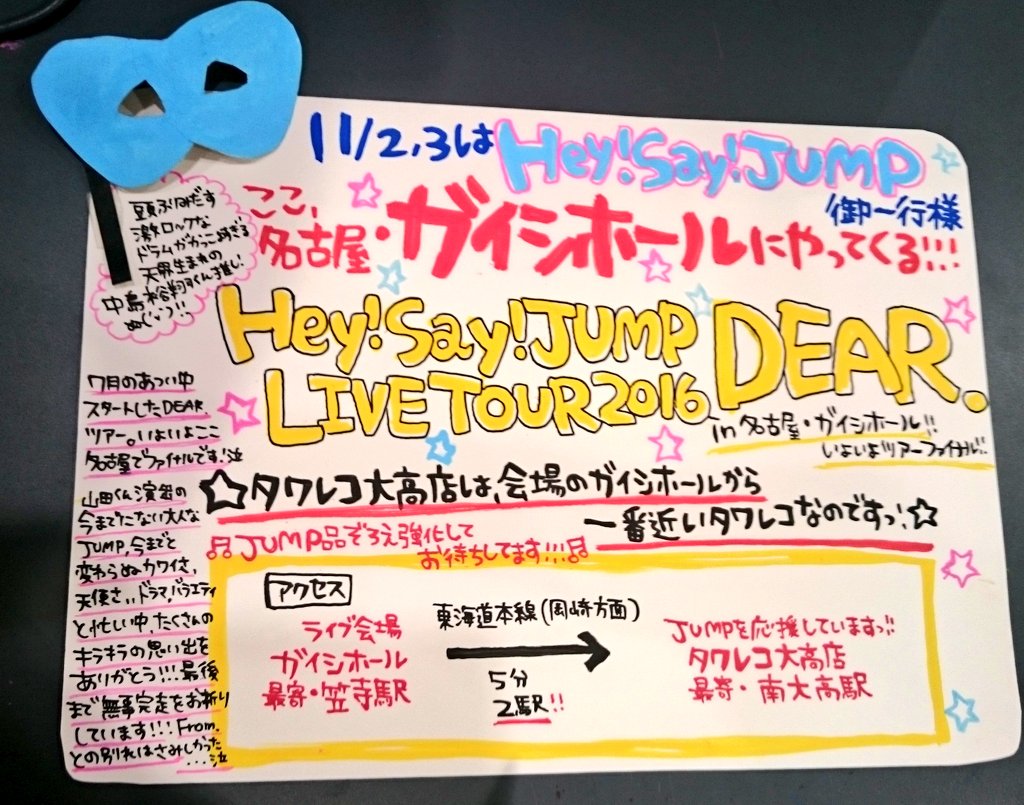 11/2,3は Hey!Say!JUMP
御一行様
ここ、
名古屋・ガイシホールにやってくる!!!
頭ふりみだす
激ロックな
ドラムがかっこ良すぎる
天界生まれの
中島裕翔くん推し
Hey!Say!JUMP
LIVE TOUR 2016 DEAR.
in 名古屋・ガイシホール!!
いよいよツアーファイナル!!
7月のあつい中
スタートしたDEAR.
ツアー。いよいよここ
名古屋でファイナルです!泣
山田くん演出の
今までにない大人な
JUMP、今までと
変わらぬカワイさ、
天使さ、、ドラマ、バラエティ
と忙しい中、たくさんの
キラキラの思い出を
ありがとう!!!最後
まで無事完走をお祈り
しています!!!From.
との別れはさみしかった
...泣
☆タワレコ大高店は、会場のガイシホールから
一番近いタワレコなのですっ!☆
♫JUMP品ぞろえ強化して
お待ちしてます!!!♫
アクセス
ライブ会場
ガイシホール
最寄・笠寺駅
東海道本線(岡崎方面)
5分
2駅!!
JUMPを応援していますっ!!
タワレコ大高店
最寄・南大高駅